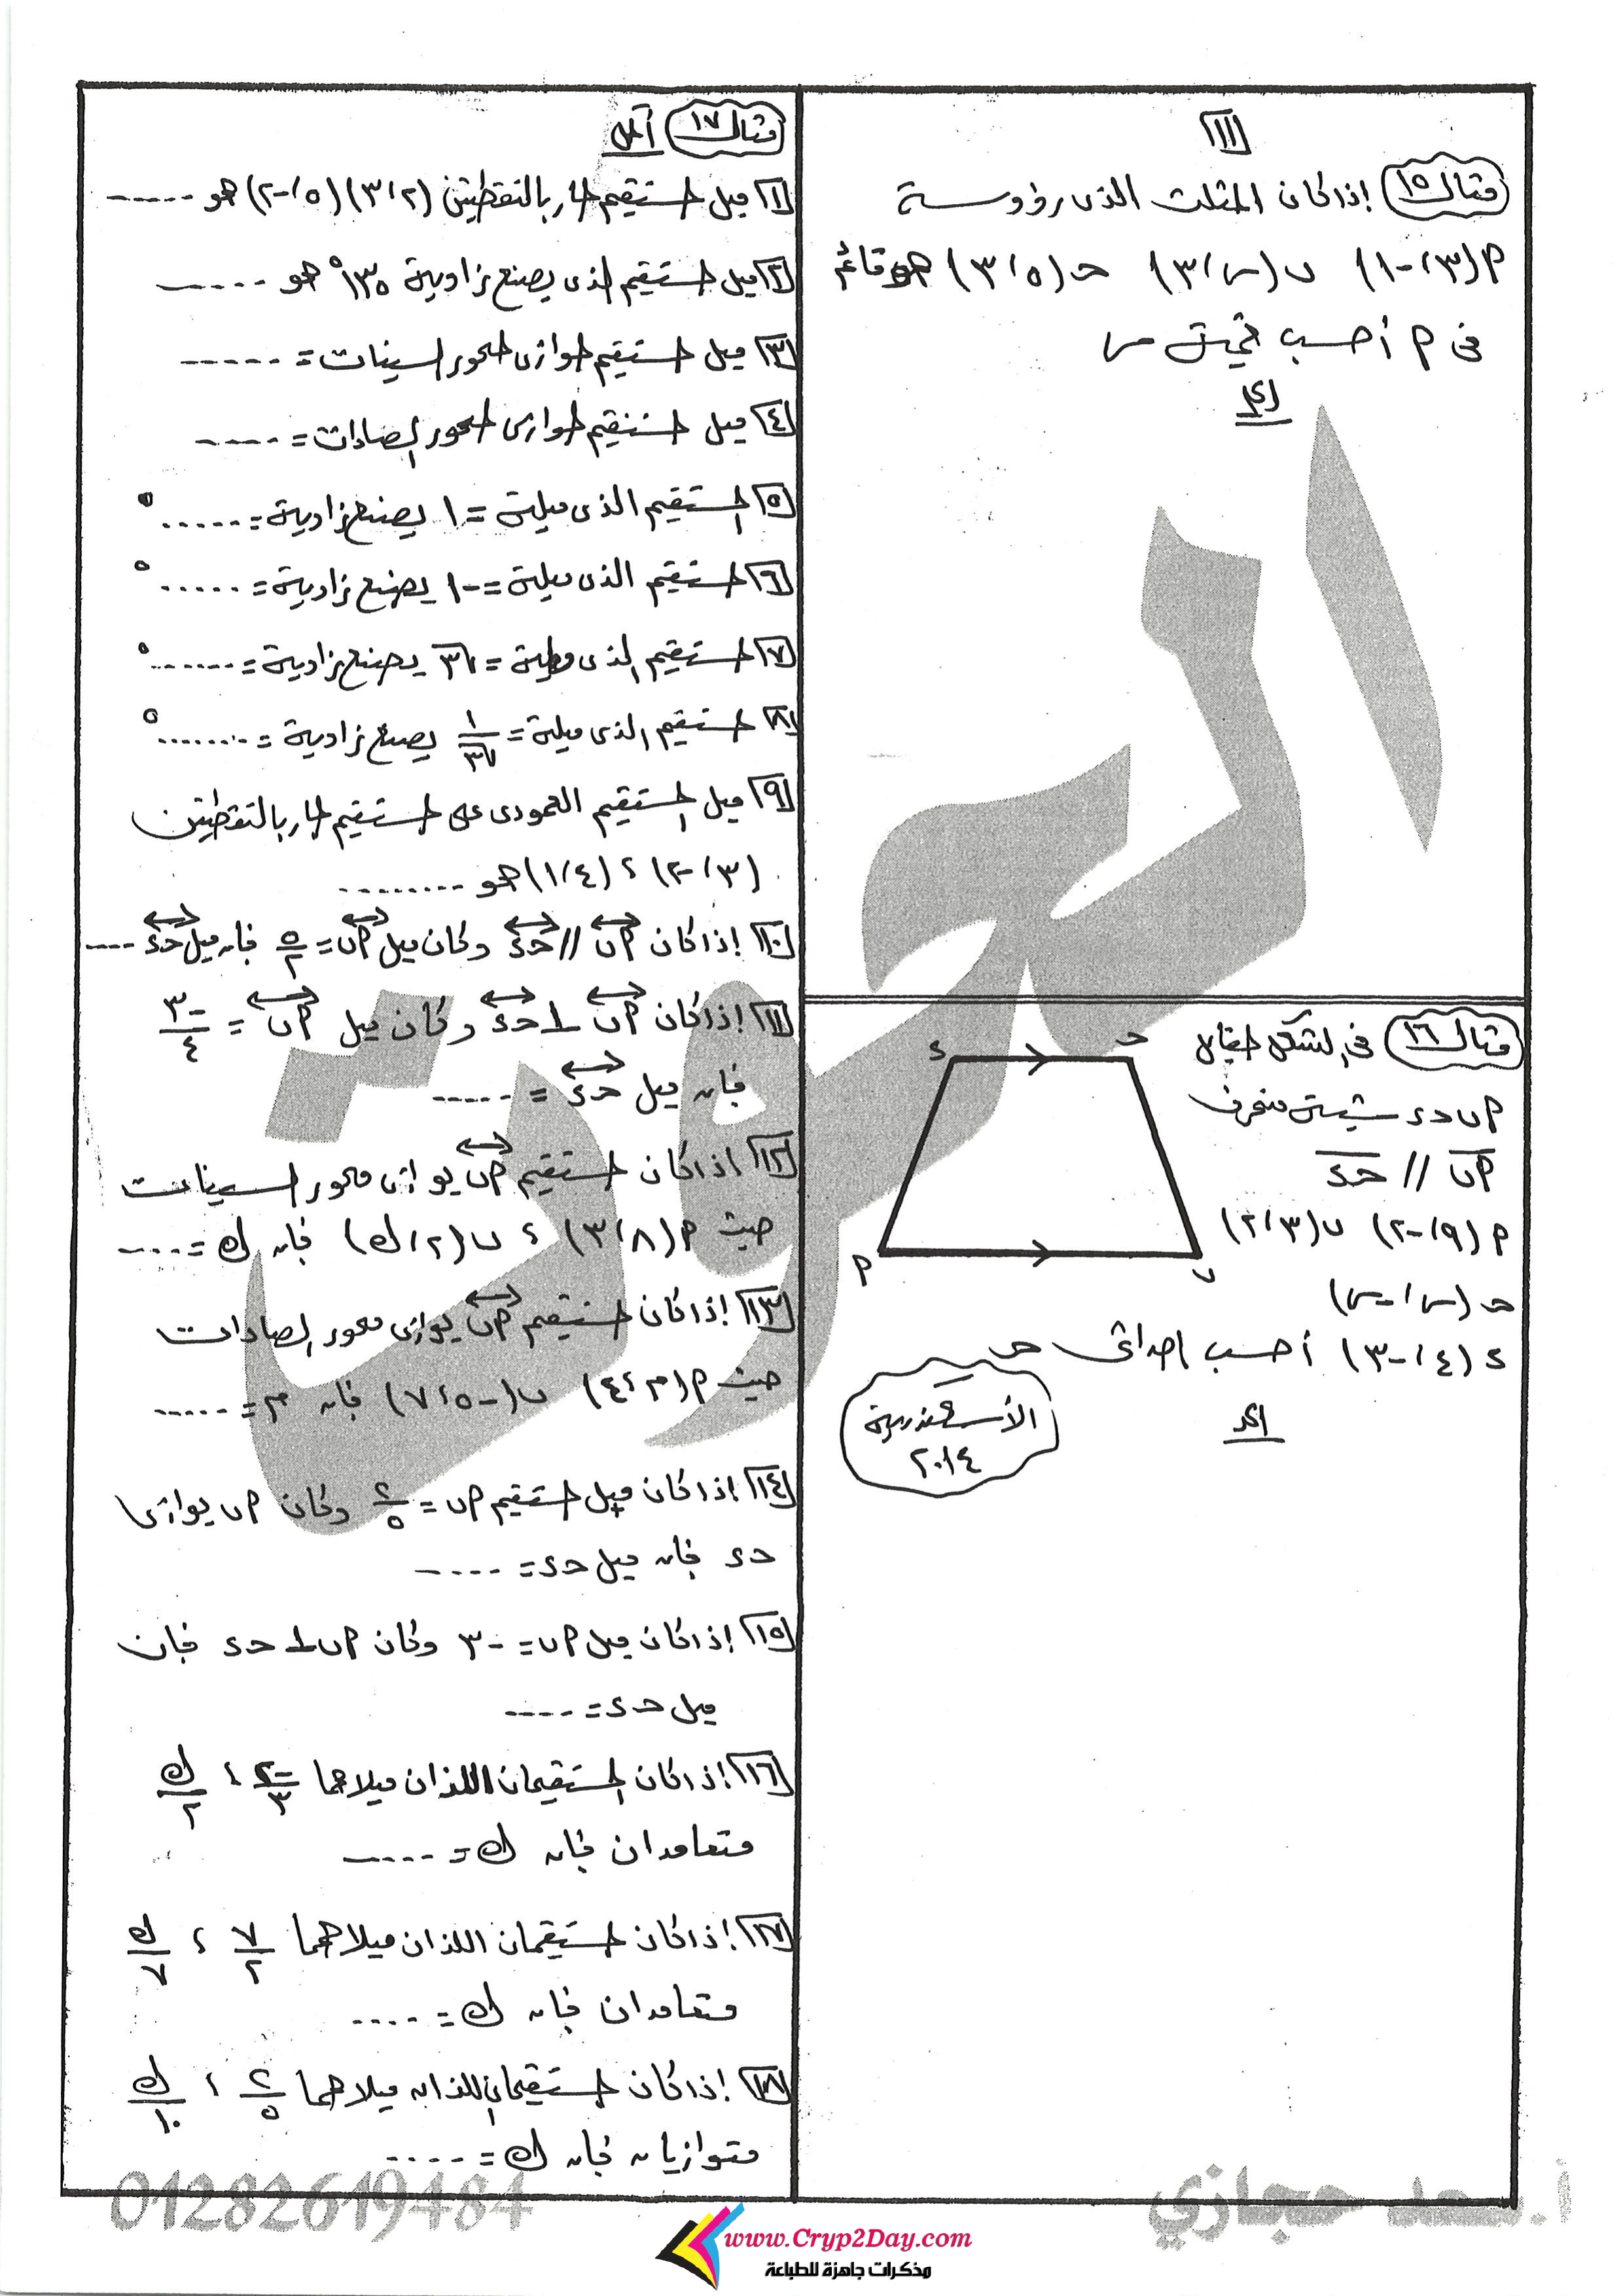 ١١
مثال ١٥ إذا كان المثلث الذى رؤوسه
P(٣، -١) ب(س، ٣) حـ(٥، ٣) هو قائم
فى P أحسب قيمة س
الحل
مثال ١٦ فى الشكل المقابل
P ب حـ د شبه منحرف
P ب // حـ د
P(٩، -٢) ب(٣، ٢)
حـ(س، -س)
د(٤، -٣) أحسب إحداثى حـ
الأسكندرية
٢٠١٤
الحل
د حـ
P ب
مثال ١٧ أكمل
١ ميل المستقيم المار بالنقطتين (٢، ٣) (٥، -٢) هو -----
٢ ميل المستقيم الذى يصنع زاوية ١٣٥° هو -----
٣ ميل المستقيم الموازى لمحور السينات = -----
٤ ميل المستقيم الموازى لمحور الصادات = -----
٥ المستقيم الذى ميله = ١ يصنع زاوية = .....°
٦ المستقيم الذى ميله = -١ يصنع زاوية = .....°
٧ المستقيم الذى ميله = √٣ يصنع زاوية = ......°
٨ المستقيم الذى ميله = ١/√٣ يصنع زاوية = .......°
٩ ميل المستقيم العمودى على المستقيم المار بالنقطتين
(٣، -٢) ، (٤، ١) هو --------
١٠ إذا كان P ب // حـ د وكان ميل P ب = ٥/٢ فإن ميل حـ د ----
١١ إذا كان P ب ⊥ حـ د وكان ميل P ب = -٣/٤
فإن ميل حـ د = -----
١٢ إذا كان المستقيم P ب يوازى محور السينات
حيث P(٨، ٣) ، ب(٢، ك) فإن ك = ----
١٣ إذا كان المستقيم P ب يوازى محور الصادات
حيث P(م، ٤) ب(-٥، ٧) فإن م = -----
١٤ إذا كان ميل المستقيم P ب = ٢/٥ وكان P ب يوازى
حـ د فإن ميل حـ د = ----
١٥ إذا كان ميل P ب = -٣ وكان P ب ⊥ حـ د فإن
ميل حـ د = ----
١٦ إذا كان المستقيمان اللذان ميلاهما -٢/٣ ، ك/٢
متعامدان فإن ك = -----
١٧ إذا كان المستقيمان اللذان ميلاهما ٧/٢ ، ك/٧
متعامدان فإن ك = ----
١٨ إذا كان المستقيمان اللذان ميلاهما ٢/٥ ، ك/١٠
متوازيان فإن ك = -----
01282619484
أ.سعد حجازي
www.Cryp2Day.com
مذكرات جاهزة للطباعة